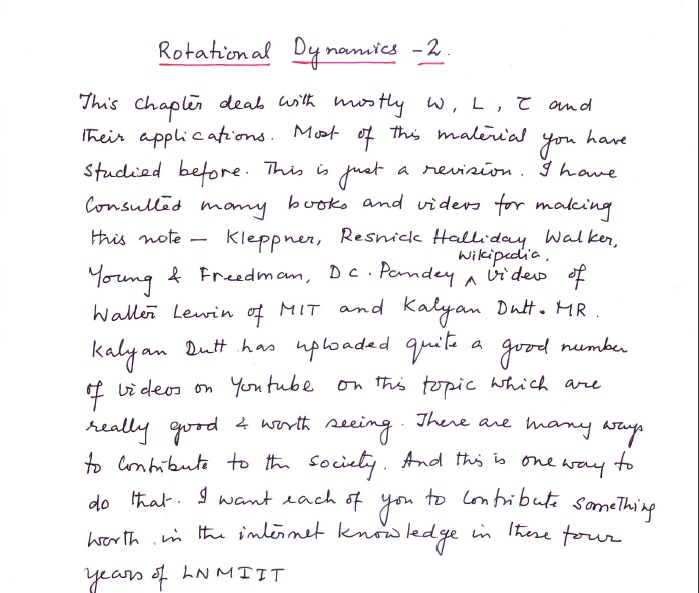 Rotational Dynamics - 2.
This chapter deals with mostly W, L, τ and
their applications. Most of this material you have
studied before. This is just a revision. I have
consulted many books and videos for making
this note — Kleppner, Resnick Halliday, Walker,
wikipedia.
Young & Freedman, D C. Pandey ^ videos of
Walter Lewin of MIT and Kalyan Dutt. MR.
Kalyan Dutt has uploaded quite a good number
of videos on Youtube on this topic which are
really good & worth seeing. There are many ways
to contribute to the society. And this is one way to
do that. I want each of you to contribute something
worth in the internet knowledge in these four
years of LNMIIT